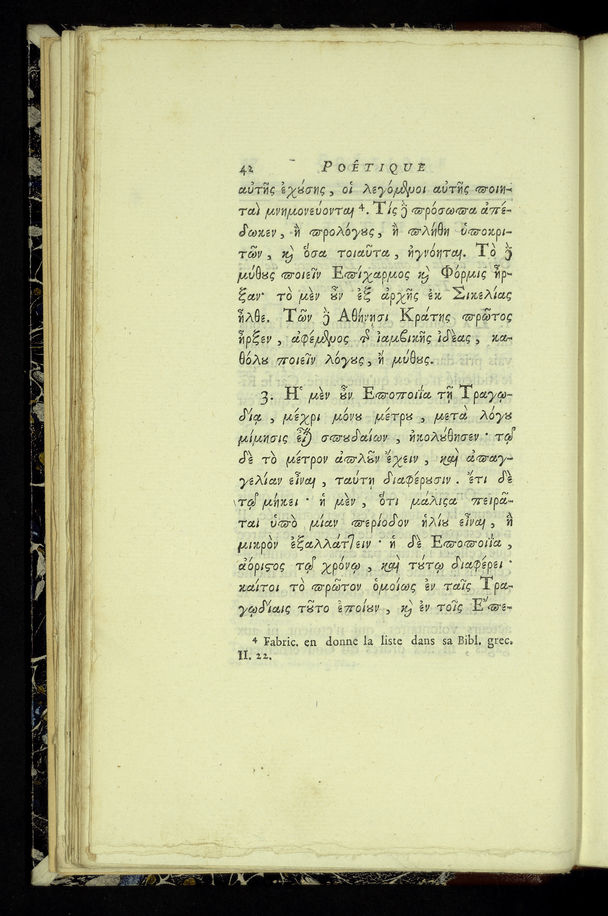 42 POÉTIQUE
αὐτῆς ἐχούσης, οἱ λεγόμενοι αὐτῆς ποιη-
ταὶ μνημονεύονται ⁴. Τίς δὲ πρόσωπα ἀπέ-
δωκεν, ἢ προλόγους, ἢ πλήθη ὑποκρι-
τῶν, καὶ ὅσα τοιαῦτα, ἠγνόηται. Τὸ δὲ
μύθους ποιεῖν Ἐπίχαρμος καὶ Φόρμις ἦρ-
ξαν· τὸ μὲν οὖν ἐξ ἀρχῆς ἐκ Σικελίας
ἦλθε. Τῶν δὲ Ἀθήνησι Κράτης πρῶτος
ἦρξεν, ἀφέμενος τῆς ἰαμβικῆς ἰδέας, κα-
θόλου ποιεῖν λόγους, ἢ μύθους.
3. Ἡ μὲν οὖν Ἐποποιΐα τῇ Τραγῳ-
δίᾳ, μέχρι μόνου μέτρου, μετὰ λόγου
μίμησις εἶναι σπουδαίων, ἠκολούθησεν· τῷ
δὲ τὸ μέτρον ἁπλοῦν ἔχειν, καὶ ἀπαγ-
γελίαν εἶναι, ταύτῃ διαφέρουσιν. ἔτι δὲ
τῷ μήκει· ἡ μὲν, ὅτι μάλιστα πειρᾶ-
ται ὑπὸ μίαν περίοδον ἡλίου εἶναι, ἢ
μικρὸν ἐξαλλάττειν· ἡ δὲ Ἐποποιΐα,
ἀόριστος τῷ χρόνῳ, καὶ τούτῳ διαφέρει·
καίτοι τὸ πρῶτον ὁμοίως ἐν ταῖς Τρα-
γῳδίαις τοῦτο ἐποίουν, καὶ ἐν τοῖς Ἔπε-
⁴ Fabric. en donne la liste dans sa Bibl. grec.
II. 22.